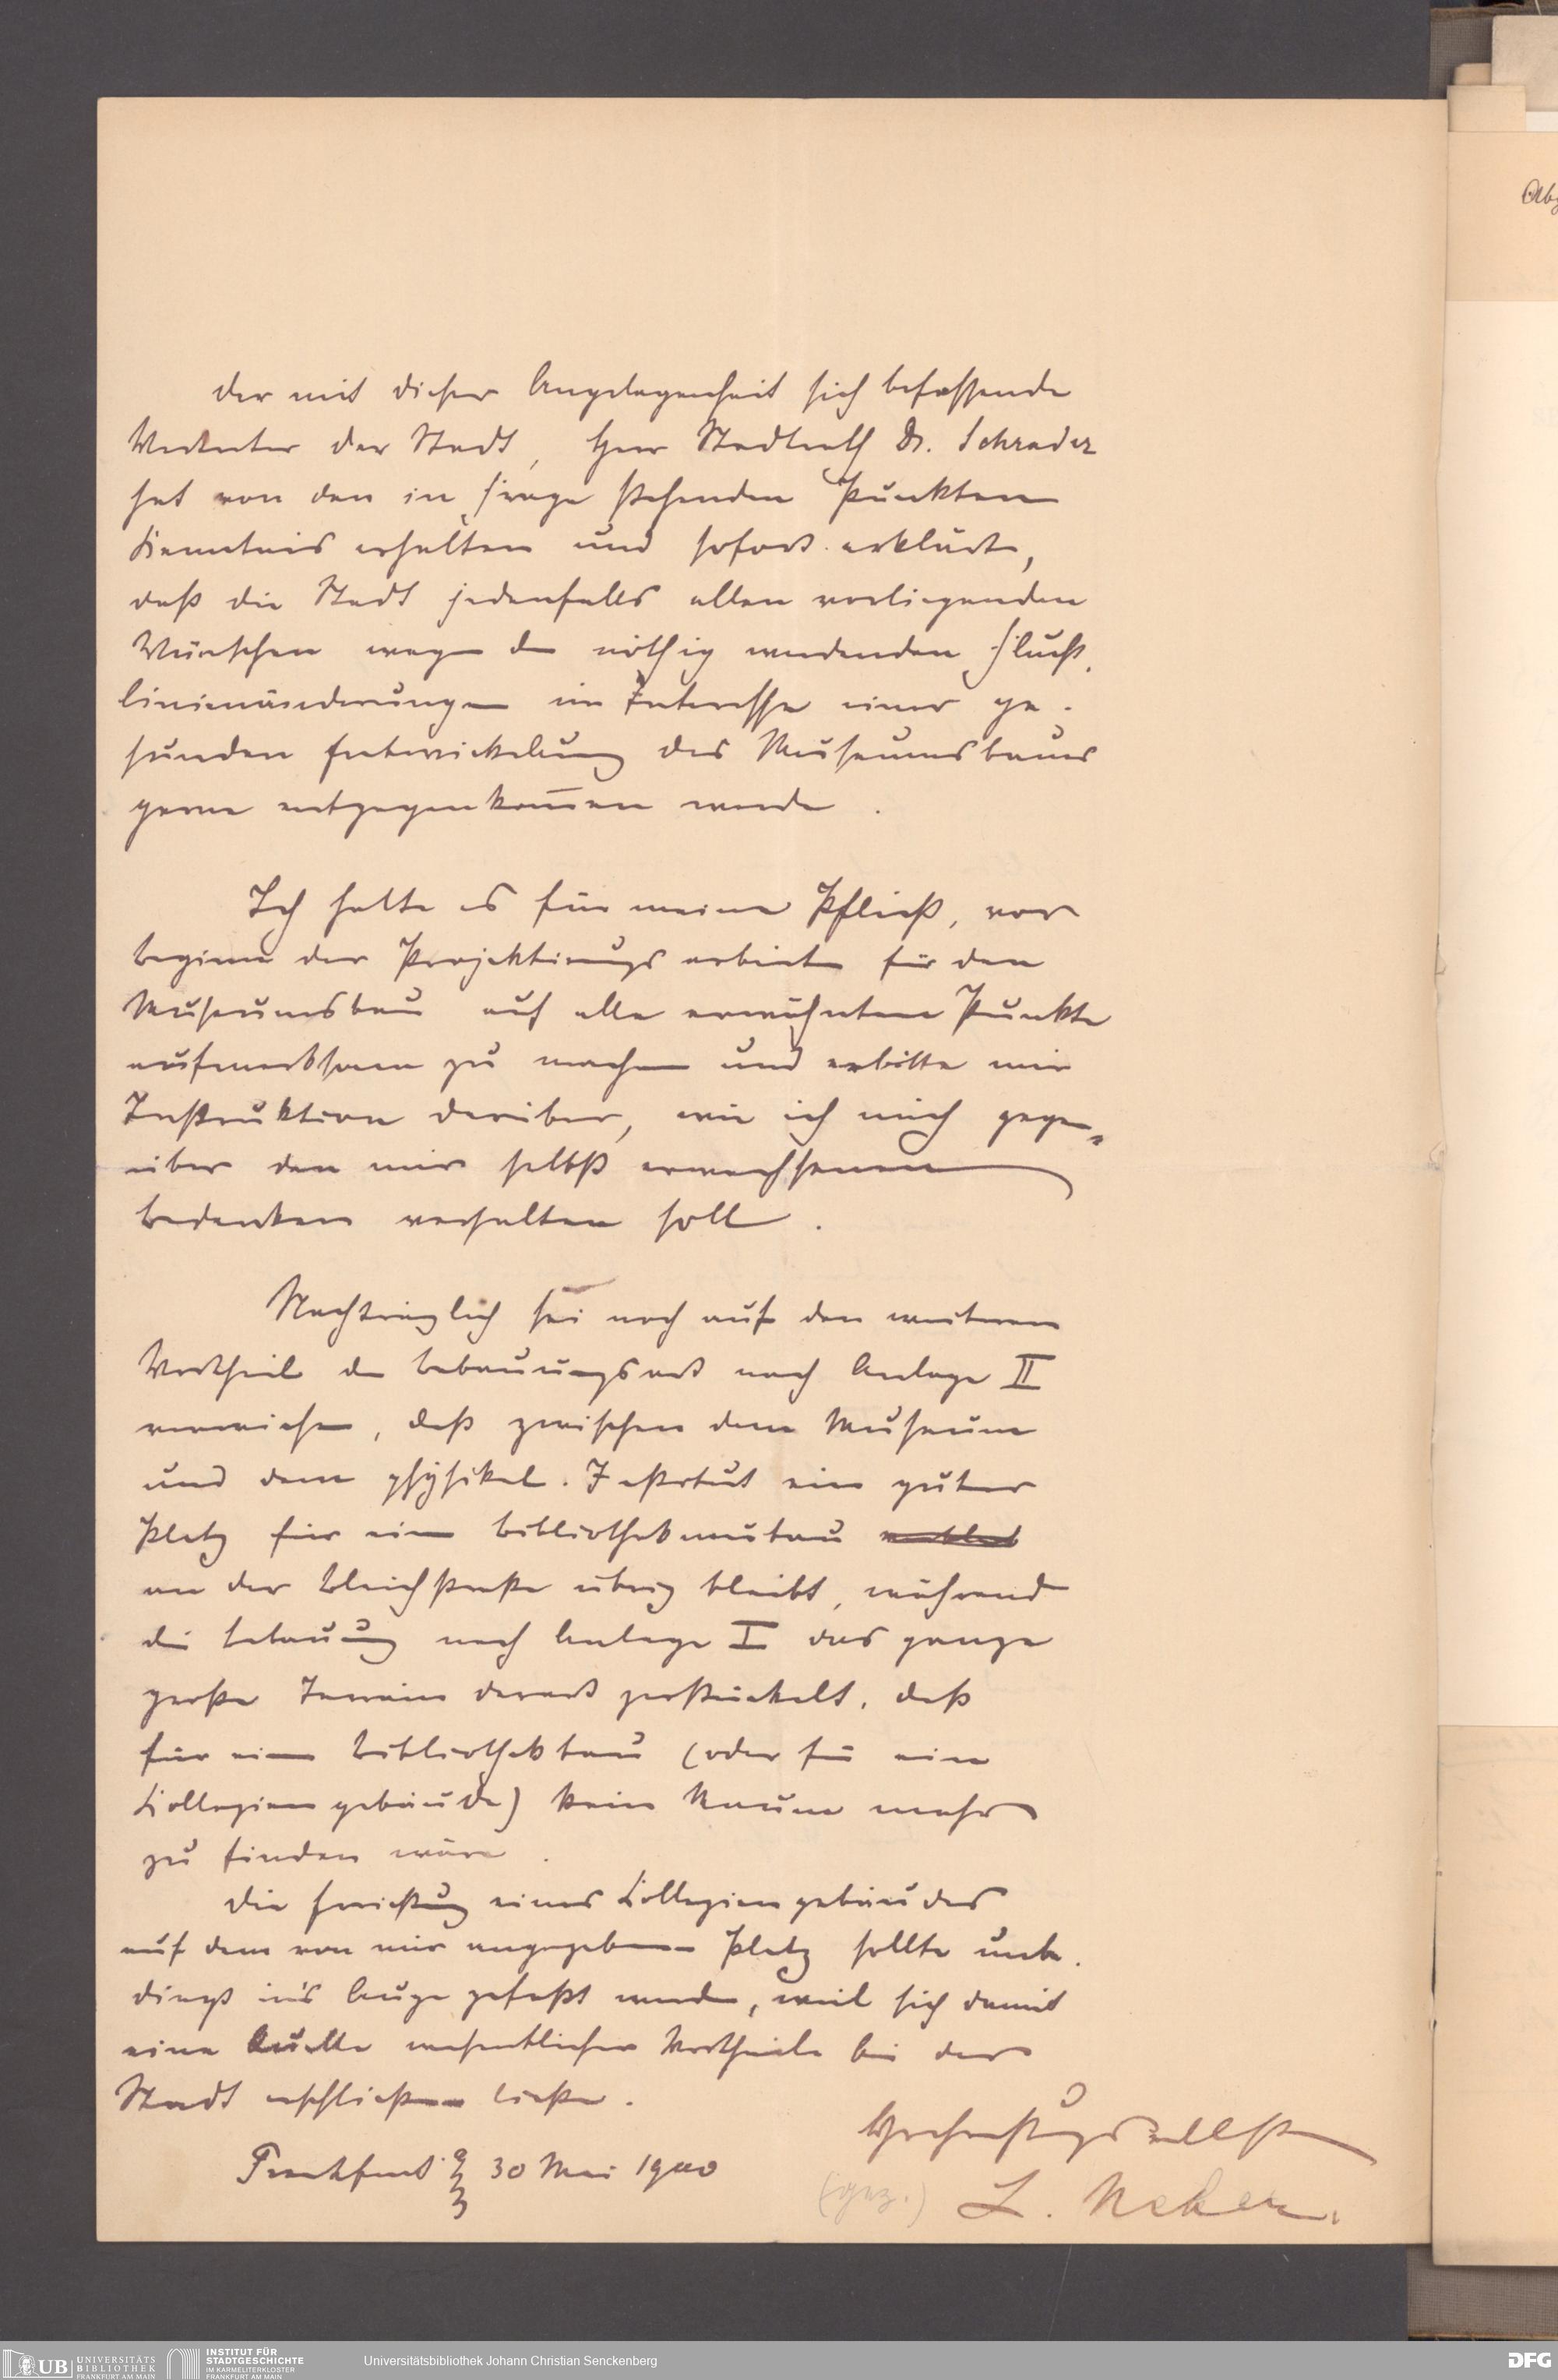 Der mit dieser Angelegenheit sich befassende
Vertreter der Stadt, Herr Stadtrath Dr. Schrader
hat von den in Frage stehenden Punkten
Kenntnis erhalten und sofort erklärt,
daß die Stadt jedenfalls allen vorliegenden
Wünschen wegen der nöthig werdenden Flucht-
linienänderungen im Interesse einer ge-
sunden Entwickelung des Museumsbaues
gerne entgegenkom̅en werde.
Ich halte es für meine Pflicht, vor
Beginn der Projektirungsarbeiten für den
Museumsbau auf alle erwähnten Punkte
aufmerksam zu machen und erbitte mir
Instruktion darüber, wie ich mich gegen-
über den mir selbst erwachsenen
Bedenken verhalten soll.
Nachträglich sei noch auf den weiteren
Vortheil der Bebauungsart nach Anlage II
verwiesen, daß zwischen dem Museum
und dem physikal. Institut ein guter
Platz für einen Bibliothekneubau
an der Bleichstraße übrig bleibt, während
die Bebauung nach Anlage I das ganze
große Terrain derart zerstückelt, daß
für einen Bibliothekbau (oder für ein
Kollegiengebäude) kein Raum mehr
zu finden wäre.
Die Errichtung eines Kollegiengebäudes
auf dem von mir angegebenen Platz sollte unbe-
dingt in's Auge gefaßt werden, weil sich damit
eine Quelle wesentlicher Vortheile bei der
Stadt erschließen ließe.
Hochachtungsvollst
Frankfurt a/M 30 Mai 1900
(gez.) L. Neher.
Abg
UB UNIVERSITÄTS
BIBLIOTHEK
FRANKFURT AM MAIN
INSTITUT FÜR
STADTGESCHICHTE
IM KARMELITERKLOSTER
FRANKFURT AM MAIN
Universitätsbibliothek Johann Christian Senckenberg
DFG